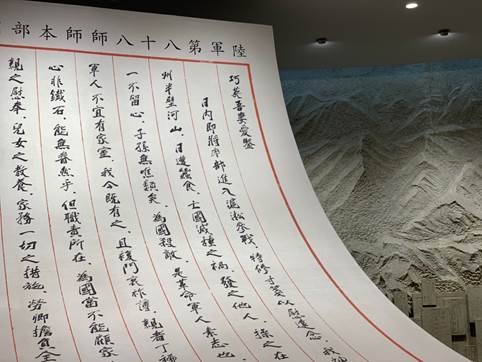 陸軍第八十八師師本部
巧英吾妻愛鑒
日內即將率部進入滬淞參戰、特修寸箋以慰遠念、我
州半壁河山、日遭蠶食、亡國滅種之禍、發之他人、操之在
一不留心、子孫無噍類矣、為國殺敵、是革命軍人素志也、
軍人不宜有家室、我今既有之、且復門衰祚薄、親者丁稀
心非鐵石、能無眷戀乎、但職責所在、為國當不能顧家
親之慰奉、兒女之教養、家務一切之措施、勞卿擔負全